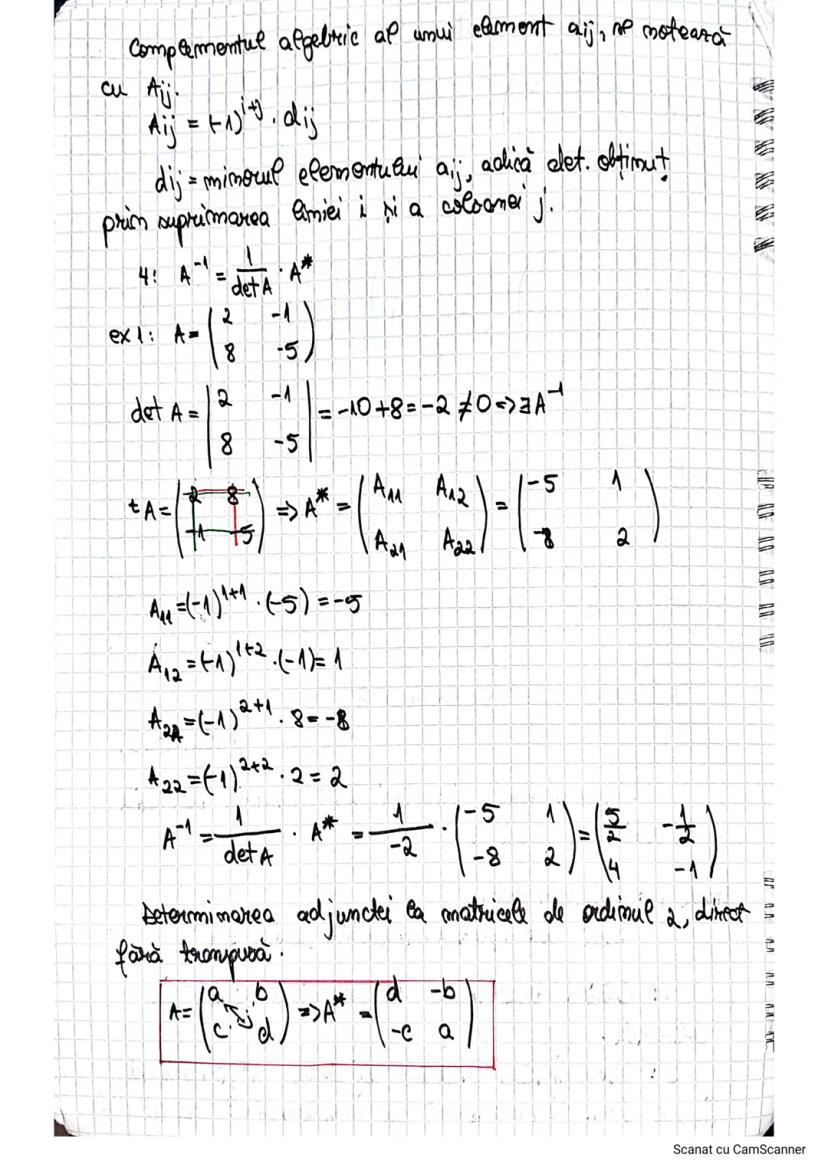 Complementul algebric al unui element aij, se notează
cu Aij.
Aij = (-1)^(i+j) · dij
dij = minorul elementului aij, adică det. obținut
prin suprimarea liniei i și a coloanei j.
4: A^-1 = 1/det A · A*
ex 1: A = (2 -1
8 -5)
det A = |2 -1
8 -5| = -10 + 8 = -2 ≠ 0 => ∃ A^-1
tA = (2 8
-1 -5) => A* = (A11 A12
A21 A22) = (-5 1
-8 2)
A11 = (-1)^(1+1) · (-5) = -5
A12 = (-1)^(1+2) · (-1) = 1
A21 = (-1)^(2+1) · 8 = -8
A22 = (-1)^(2+2) · 2 = 2
A^-1 = 1/det A · A* = 1/-2 · (-5 1
-8 2) = (5/2 -1/2
4 -1)
Determinarea adjunctei la matricele de ordinul 2, direct
fără transpusă.
A = (a b
c d) => A* = (d -b
-c a)
Scanat cu CamScanner